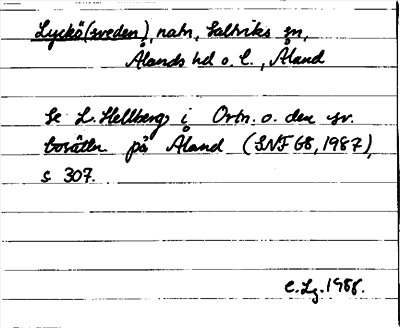 Lyckö (sveden), natn, Saltviks sn,
Ålands hd o. l., Åland
Se L. Hellberg i Ortn. o. den sv.
bosättn på Åland (SNF 68, 1987),
s 307.
C. Lg. 1988.